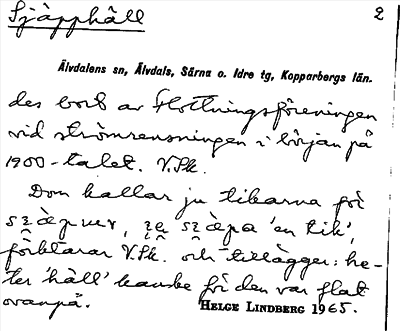 Sjäpphäll 2
Älvdalens sn, Älvdals, Särna o. Idre tg, Kopparbergs län.
des bort av Flottningsföreningen
vid strömrensningen i början på
1900-talet. V.Sk.
Dom kallar ju tikarna för
'en tik',
förklarar V.Sk. och tillägger: he-
ter 'häll' kanske för den var flat
ovanpå. HELGE LINDBERG 1965.